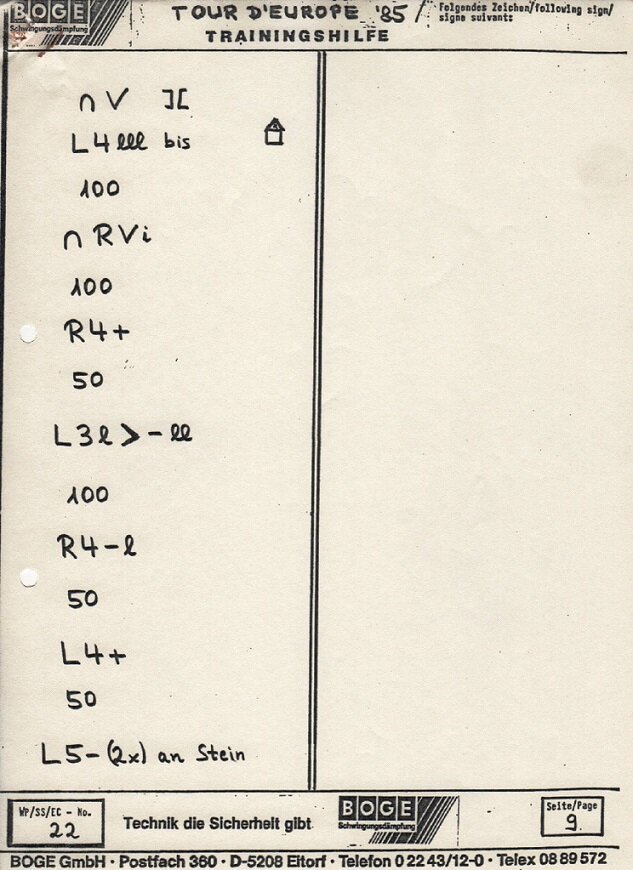 BOGE
Schwingungsdämpfung
TOUR D'EUROPE '85 /
TRAININGSHILFE
Folgendes Zeichen/following sign/
signe suivant:
∩ V ][
L4lll bis
100
∩ RVi
100
R4+
50
L3l>-ll
100
R4-l
50
L4+
50
L5-(2x) an Stein
WP/SS/EC - No.
22
Technik die Sicherheit gibt
BOGE
Schwingungsdämpfung
Seite/Page
9
BOGE GmbH · Postfach 360 · D-5208 Eitorf · Telefon 0 22 43/12-0 · Telex 08 89 572